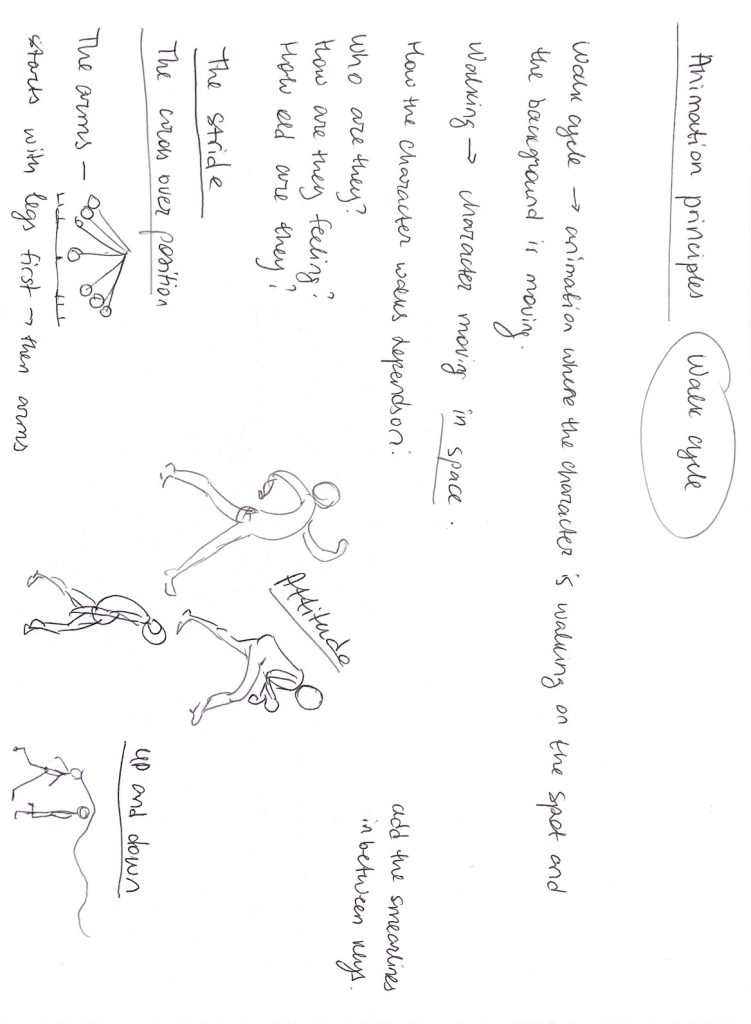 Animation principles
Walk cycle
Walk cycle → animation where the character is walking on the spot and
the background is moving.
Walking → character moving in space.
How the character walks depends on:
Who are they?
How are they feeling?
How old are they?
add the smearlines
in between keys.
The stride
The cross over position
Attitude
up and down
The arms –
starts with legs first → then arms